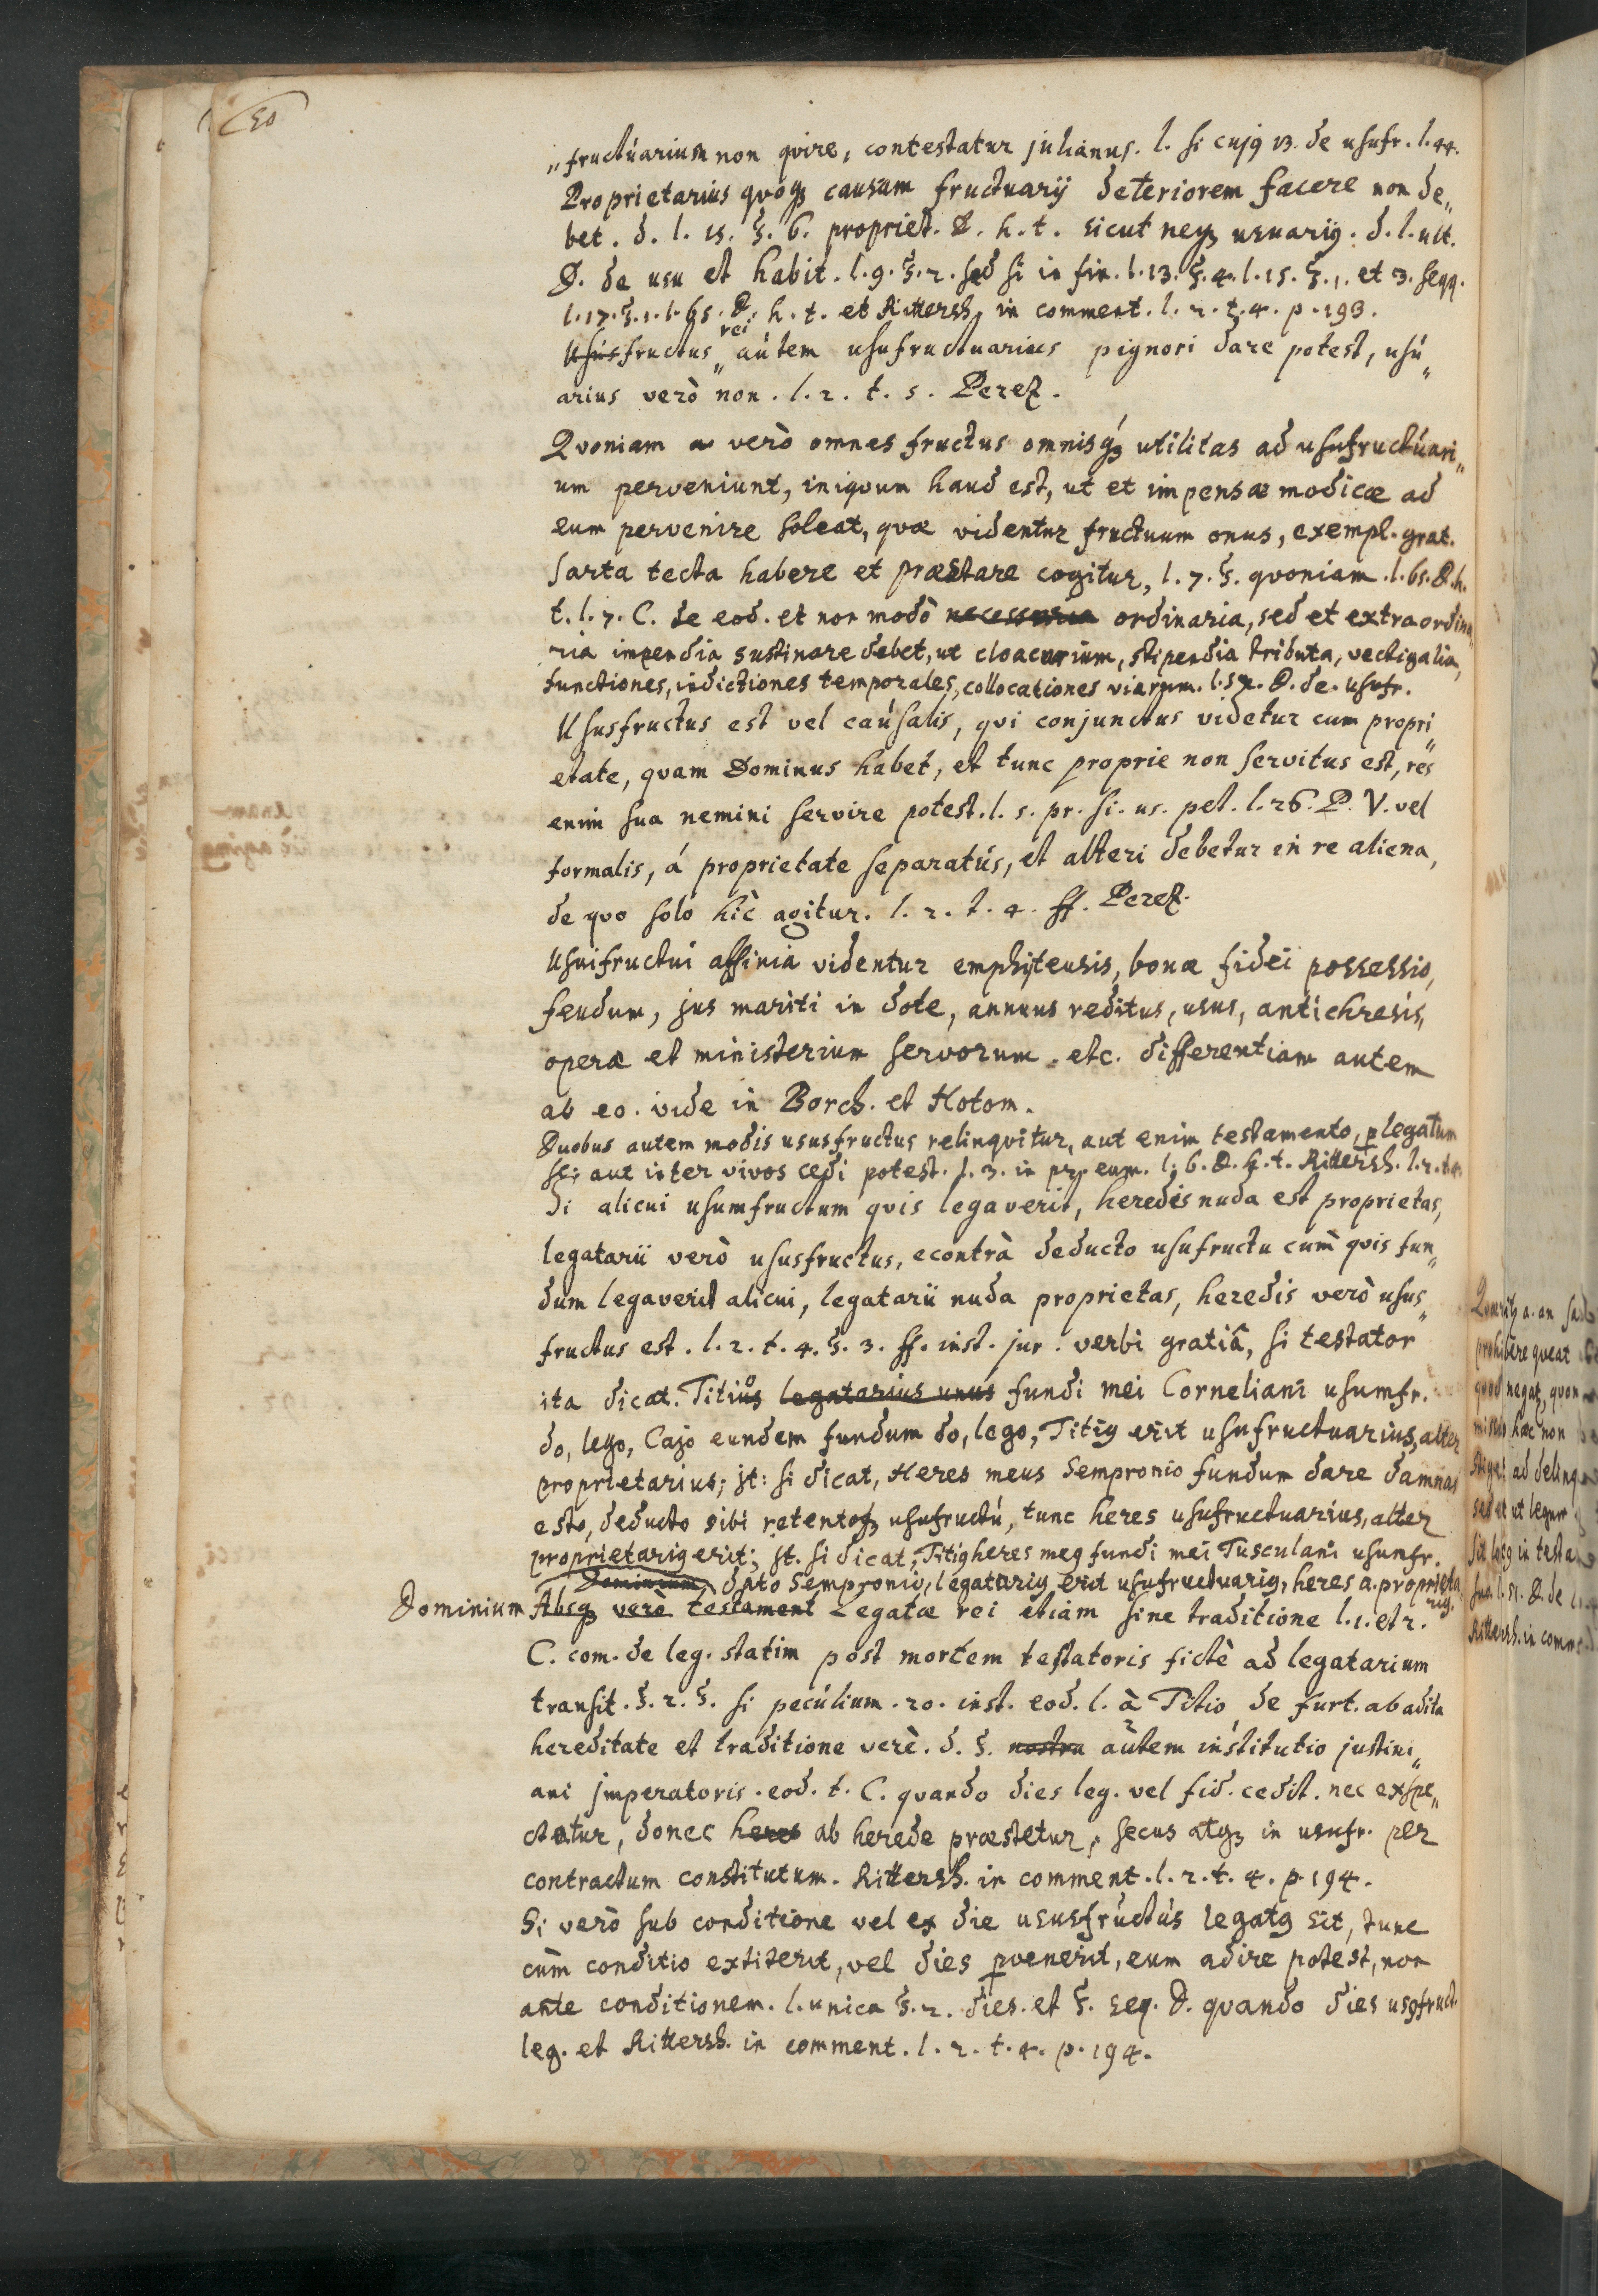 50
„fructúarium non qvire, contestatur júlianus. l. si cujꝯ 13. de usufr. l. 44.
Proprietarius qvóqȝ causam fructuarij deteriorem facere non de„
bet. d. l. 15. §. 6. propriet. D. h. t. sicut neqȝ usuariꝯ. d. l. ult.
D. de usu et habit. l. 9. §. 2. sed si in fin. l. 13. §. 4. l. 15. §. 1. et 3. seqq.
l. 17. §. 1. l. 65. D. h. t. et Rittersh. in comment. l. 2. t. 4. p. 193.
rei
Usúsfructus „ aútem usufructuarius pignori dare potest, usú„
arius verò non. l. 2. t. 5. Perez.
Qvoniam verò omnes fructus omnisqȝ́ utilitas ad usufructúari„
um perveniunt, iniqvum haud est, ut et impensæ modicæ ad
eum pervenire soleat, qvæ videntur fructuum onus, exempl. grat.
sarta tecta habere et præstare cogitur, l. 7. §. qvoniam. l. 65. D. h.
t. l. 7. C. de eod. et non modò necessaria ordinaria, sed et extraordina
ria impendia sustinere debet, ut cloacarium, stipendia tributa, vectigalia,
functiones, indictiones temporales, collocationes viarum. l. 52. D. de. usufr.
Ususfructus est vel caúsalis, qvi conjunctus videtur cum propri„
etate, qvam Dominus habet, et tunc proprie non servitus est, res
enim sua nemini servire potest. l. 5. pr. si. us. pet. l. 26. D. V. vel
formalis, á proprietate separatús, et alteri debetur in re aliena,
de qvo solo hîc agitur. l. 2. t. 4. ff. Perez.
Usuifructui affinia videntur emphijteusis, bonæ fidei possessio,
feudum, jus mariti in dote, annuus reditus, usus, antichresis,
operæ et ministerium servorum. etc. differentiam autem
ab eo. vide in Borch. et Hotom.
Duobus autem modis ususfructus relinqvitur, aut enim testamento, p legatum
sc: aut inter vivos cedi potest. l. 3. in pr. eum. l. 6. D. h. t. Rittersh. l. 2. t. 4.
Si alicui usumfructum qvis legaverit, heredis nuda est proprietas,
legatarii verò ususfructus, econtrà deducto usufructu cum̀ qvis fun„
dum legaverit alicui, legatarii nuda proprietas, heredis verò usus„
fructus est. l. 2. t. 4. §. 3. ff. inst. jur. verbi gratiâ, si testator
ita dicat. Titiusͦ legatarius unus fundi mei Corneliani usumfr.
do, lego, Cajo eundem fundum do, lego, Titiꝯ erit usufructuarius, alter
proprietarius; jt: si dicat, Heres meus Sempronio fundum dare damnas
esto, deducto sibi retentoqȝ usufructú, tunc heres usufructuarius, alter
proprietariꝯ erit; jt. si dicat, Titiꝯ heres meꝯ fundi mei Tusculani usumfr.
Dominium, dato Sempronio, legatariꝯ erit usufructuariꝯ, heres a. proprieta
riꝯ.
Dominium Absqȝ verò testament Legatæ rei etiam sine traditione l. 1. et 2.
C. com. de leg. statim post mortem testatoris fictè ad legatarium
transit. §. 2. §. si pecúlium. 20. inst. eod. l. à Titio de furt. ab adita
hereditate et traditione verè. d. §. 2 nostra aùtem institutio justini„
ani jmperatoris. eod. t. C. qvando dies leg. vel fid. cedit. nec exspe„
ctatur, donec heres ab herede præstetur, secus atqȝ in usufr. per
contractum constitutum. Rittersh. in comment. l. 2. t. 4. p. 194.
Si verò sub conditione vel ex die ususfrúctús legatꝯ sit, tunc
cùm conditio extiterit, vel dies pvenerit, eum adire potest, non
ante conditionem. l. unica §. 2. dies. et §. seq. D. qvando dies usꝯfruct.
leg. et Rittersh. in comment. l. 2. t. 4. p. 194.
prohibere qveat
qvod negat, qvon
minus hæc non
ad delinq
sed et ut legum
in testa
Rittersh. in comm